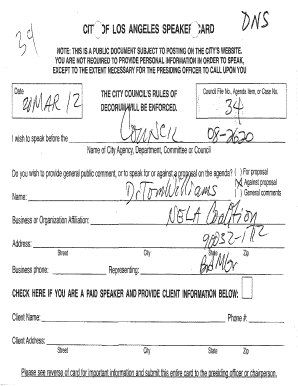 34
DNS
CITY OF LOS ANGELES SPEAKER CARD
NOTE: THIS IS A PUBLIC DOCUMENT SUBJECT TO POSTING ON THE CITY'S WEBSITE.
YOU ARE NOT REQUIRED TO PROVIDE PERSONAL INFORMATION IN ORDER TO SPEAK,
EXCEPT TO THE EXTENT NECESSARY FOR THE PRESIDING OFFICER TO CALL UPON YOU
Date
20 MAR 12
THE CITY COUNCIL'S RULES OF
DECORUM WILL BE ENFORCED.
Council File No., Agenda Item, or Case No.
34
I wish to speak before the Council 08-2620
Name of City Agency, Department, Committee or Council
Do you wish to provide general public comment, or to speak for or against a proposal on the agenda? ( ) For proposal
(X) Against proposal
( ) General comments
Name: Dr Tom Williams
Business or Organization Affiliation: NELA Coalition
Address: 90032-1712
Street City State Zip
Business phone: Representing:
CHECK HERE IF YOU ARE A PAID SPEAKER AND PROVIDE CLIENT INFORMATION BELOW:
Client Name: Phone #:
Client Address:
Street City State Zip
Please see reverse of card for important information and submit this entire card to the presiding officer or chairperson.